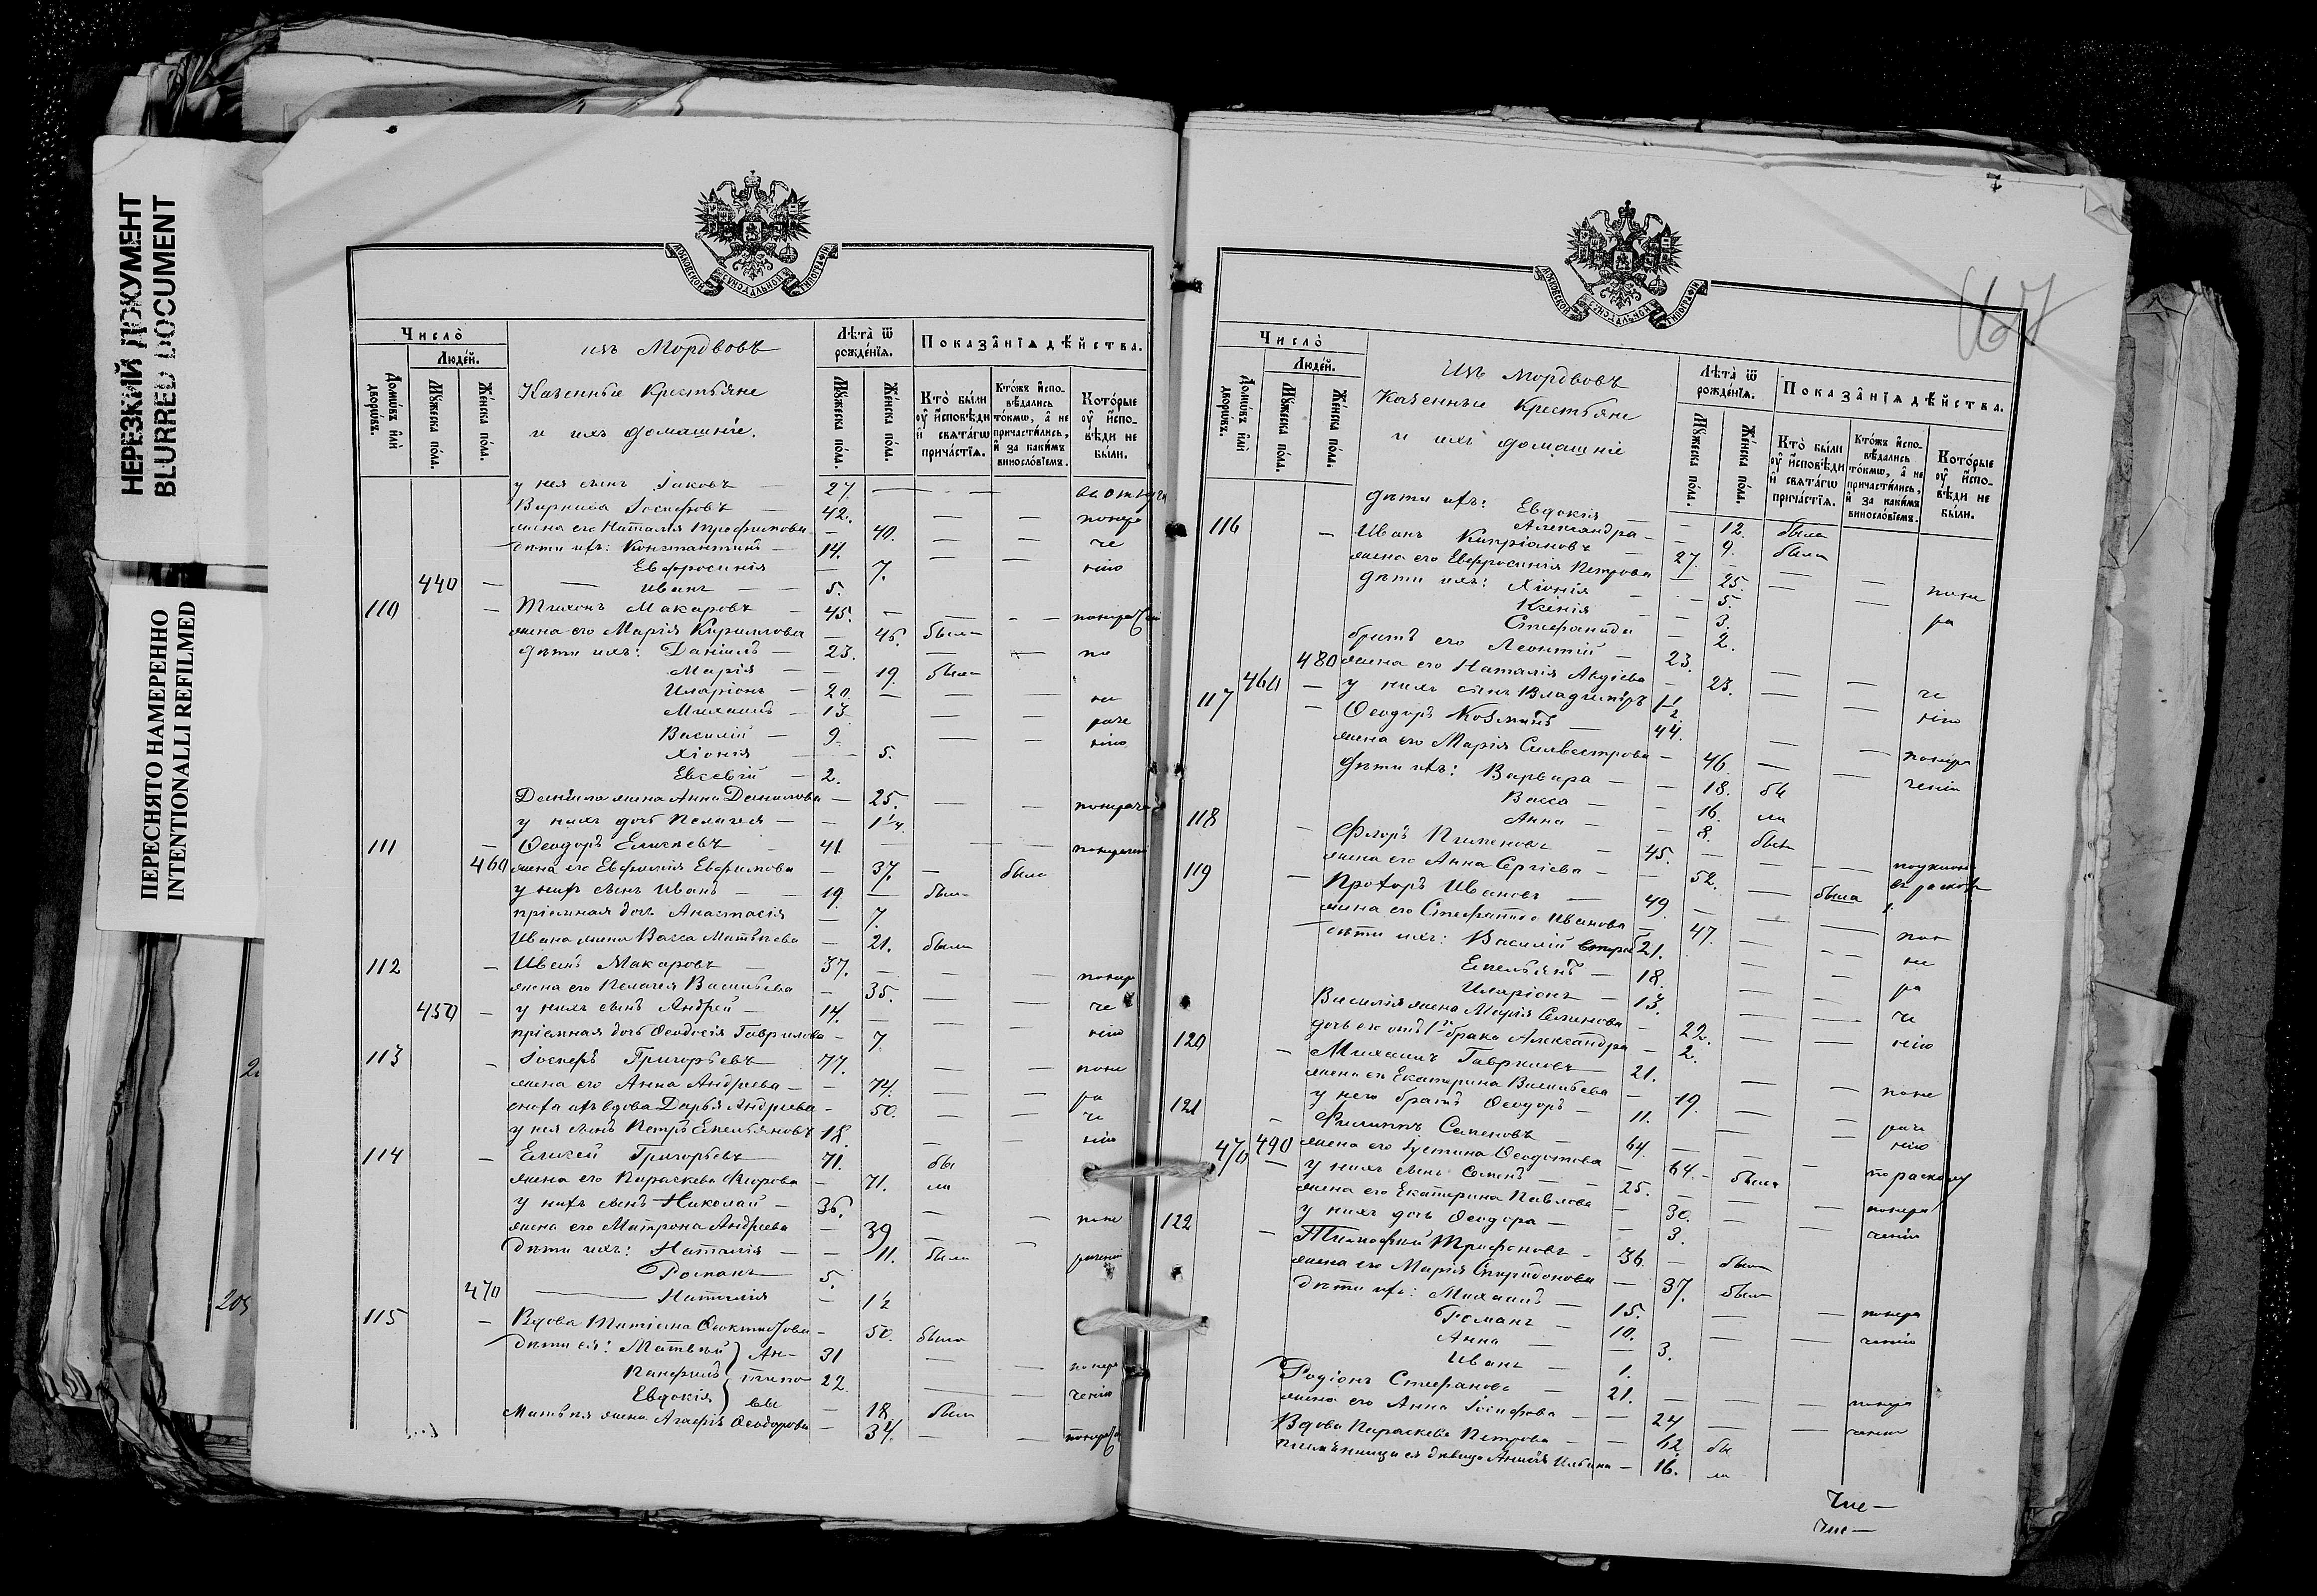 НЕРЕЗКИЙ ДОКУМЕНТ
BLURRED DOCUMENT
ПЕРЕСНЯТО НАМЕРЕННО
INTENTIONALLI REFILMED
МОСКОВСКОЙ СѴНОДАЛЬНОЙ ТИПОГРАФІИ
Число̀
Людей.
Домѡвъ и҆лѝ дворѡвъ.
Мꙋжеска пола.
Женска пола.
изъ Мордвовъ
Казенные Крестьяне
и ихъ домашніе.
Лѣта̀ ѿ рожденїѧ.
Мꙋжеска пола.
Женска пола.
Показанїѧ дѣйства.
Кто̀ были ᲂу҆ и҆сповѣди и҆ свѧтагѡ причастїѧ.
Кто́жъ и҆сповѣдались то́кмѡ, а҆ не причастились, и҆ за какимъ винословїемъ.
Которые ᲂу҆ и҆сповѣди не были.
у нея сынъ Іаковъ — 27. — — —
Варнава Іосифовъ — 42. — — понера
жена его Наталія Трофимова — 40. — — че
дѣти ихъ: Константинъ — 14. — — нію
Евфросинія — 7.
440 — Иванъ — 5.
110 — Тихонъ Макаровъ — 45. — — —
жена его Марія Кириллова — 45. была
дѣти ихъ: Даніилъ — 23. — — по
Марія — 19. была
Иларіонъ — 20. — — не
Михаилъ — 13. — — раче
Василій — 9. — — нію
Хіонія — 5.
Евсевій — 2.
Даніила жена Анна Данилова — 25. — —
у нихъ дочь Пелагея — 1¼.
111 — Ѳеодоръ Елисеевъ — 41 — — —
460 жена его Евфимія Евфимова — 37. — была
у нихъ сынъ Иванъ — 19. — былъ
пріемная дочь Анастасія — 7.
Ивана жена Васса Матвѣева — 21. была
112 — Иванъ Макаровъ — 37. — — — понера
жена его Пелагея Васильева — 35. — — че
450 — у нихъ сынъ Андрей — 14. — — нію
пріемная дочь Ѳеодосія Гаврилова — 7.
113 — Іосифъ Григорьевъ 77. — — поне
жена его Анна Андреева — 74. — — ра
сноха ихъ вдова Дарья Андреева — 50. — — че
у нея сынъ Петръ Емельяновъ 18. — — нію
114 — Елисей Григорьевъ 71. бы
жена его Параскева Флорова — 71. ли
у нихъ сынъ Николай — 36. — — поне
жена его Матрона Андреева — 39 — —
дѣти ихъ: Наталія — 11. была раченію
Романъ 5.
470 — Наталія — 1½
115 — Вдова Татіана Ѳеоктистова — 50. была
дѣти ея: Матвѣй } Ан- 31 — — понера
Панфилъ } типо 22. — — ченію
Евдокія } вы — 18. была
Матвѣя жена Агафія Ѳеодорова — 34. — —
МОСКОВСКОЙ СѴНОДАЛЬНОЙ ТИПОГРАФІИ
167
Число̀
Людей.
Домѡвъ и҆лѝ дворѡвъ.
Мꙋжеска пола.
Женска пола.
Изъ Мордвовъ
Казенные Крестьяне
и ихъ домашніе
Лѣта̀ ѿ рожденїѧ.
Мꙋжеска пола.
Женска пола.
Показанїѧ дѣйства.
Кто̀ были ᲂу҆ и҆сповѣди и҆ свѧтагѡ причастїѧ.
Кто́жъ и҆сповѣдались то́кмѡ, а҆ не причастились, и҆ за какимъ винословїемъ.
Которые ᲂу҆ и҆сповѣди не были.
дѣти ихъ: Евдокія — 12. была
Александра — 9. была
116 — Иванъ Кипріановъ — 27. — — — поне
жена его Евфросинія Петрова — 25. — — ра
дѣти ихъ: Хіонія — 5.
Ксенія — 3.
Стефанида — 2.
братъ его Леонтій — 23. — — че
480 жена его Наталія Авдіева — 23. — — нію
460 — у нихъ сынъ Владиміръ
117 — Ѳеодоръ Козминъ — 44. — — понера
жена его Марія Сильвестрова — 46. — — ченію
дѣти ихъ: Варвара — 18. бы
Васса — 16. ли
Анна — 8. была
118 — Флоръ Пименовъ — 45. — — —
жена его Анна Сергіева — 52. — была
119 — Прохоръ Ивановъ — 49. — — — по
жена его Стефанида Иванова — 47. — — не
дѣти ихъ: Василій 21. — — ра
Емельянъ — 18. — — че
Иларіонъ — 13. — — нію
Василія жена Марія Семенова — 22. — —
дочь его отъ 1го брака Александра — 2.
120 — Михаилъ Гавриловъ — 21. — — поне
жена его Екатерина Васильева — 19. — — раче
у него братъ Ѳеодоръ — 11. — — нію
121 — Филиппъ Семеновъ — 64. — — — по расколу
490 жена его Іустина Ѳеодотова — 64. — была
470 — у нихъ сынъ Семенъ — 25. — — — понера
жена его Екатерина Павлова — 30. — — ченію
у нихъ дочь Ѳеодора — 3.
122 — Тимофей Трифоновъ — 36. — былъ
жена его Марія Спиридонова — 37. была
дѣти ихъ: Михаилъ — 15. — — понера
Романъ — 10. — — ченію
Анна — 3.
Иванъ — 1.
Родіонъ Стефановъ — 21. — — — понера
жена его Анна Іосифова — 24 — — ченію
Вдова Параскева Петрова — 62. бы
племянница ея дѣвица Анисія Ильина — 16. ли